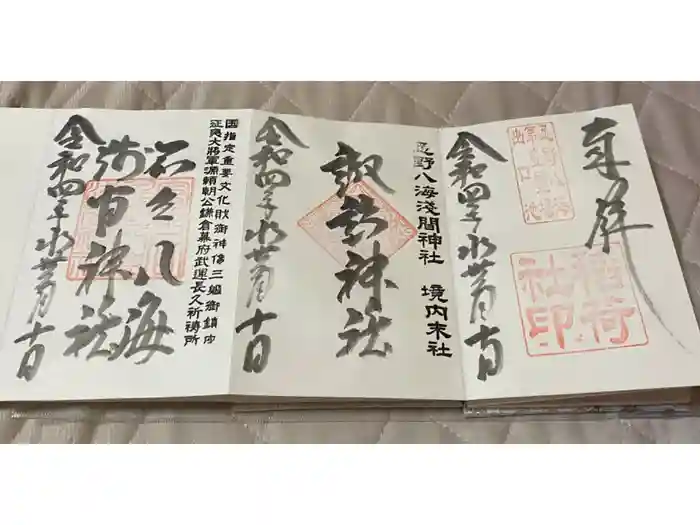 奉拝
出口池
稲荷
社印
令和四年水無月十日
忍野八海淺間神社 境内末社
諏訪神社
令和四年水無月十日
国指定重要文化財御神像三躯御鎮座
征夷大将軍源頼朝公鎌倉幕府武運長久祈祷所
忍野八海
浅間神社
令和四年水無月十日